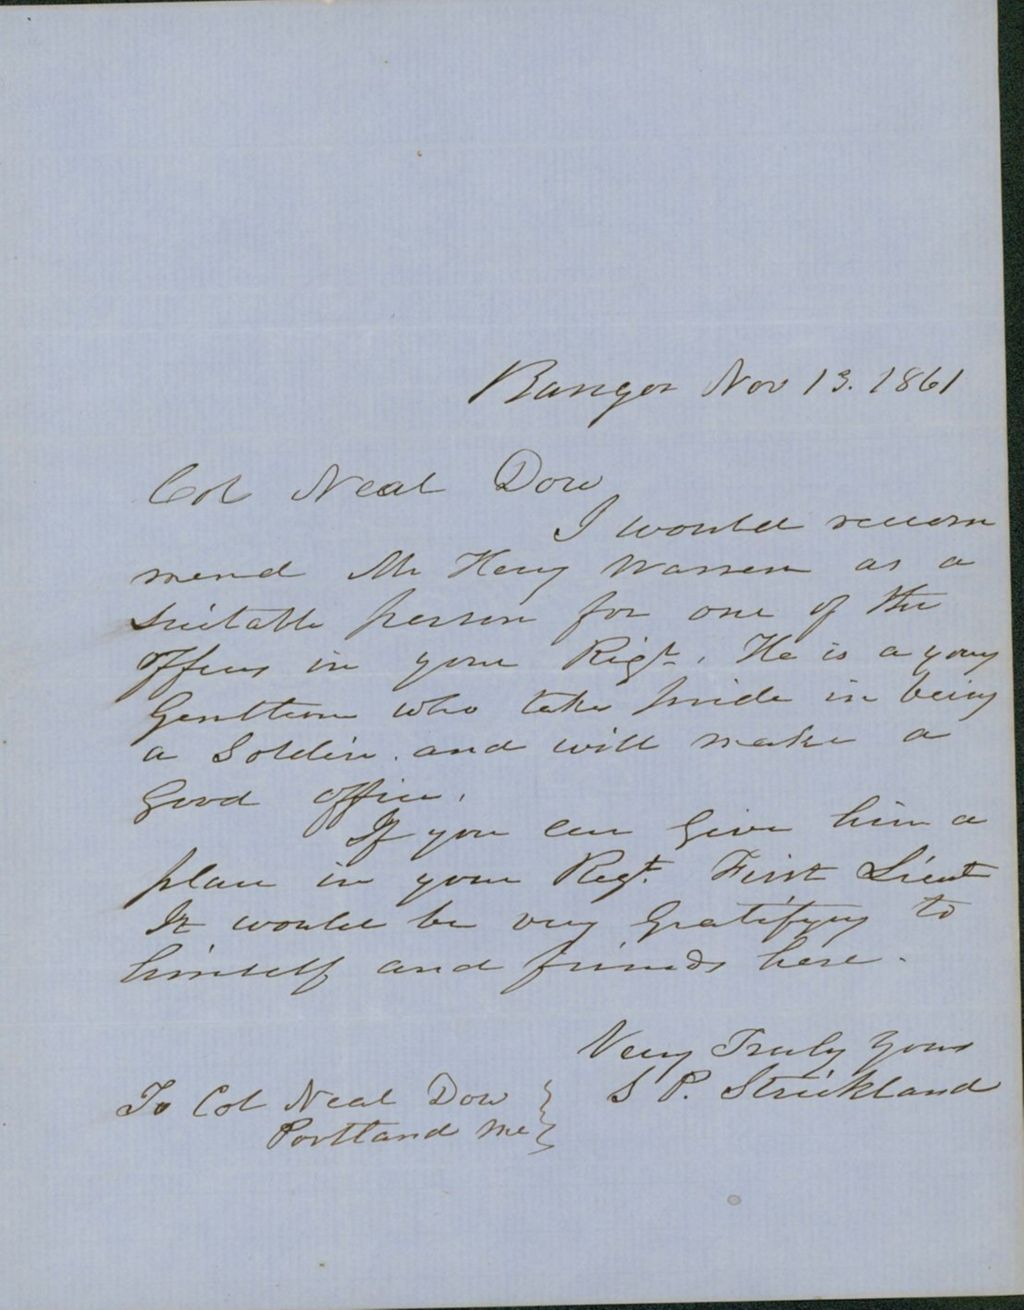 Bangor Nov 13. 1861
Col Neal Dow
I would recom
mend Mr Henry Warren as a
suitable person for one of the
offices in your Regt. He is a young
Gentleman who takes pride in being
a Soldier. and will make a
Good officer.
If you can Give him a
place in your Regt. First Lieut
It would be very Gratifying to
himself and friends here.
Very Truly Yours
S P. Strickland
To Col Neal Dow
Portland Me